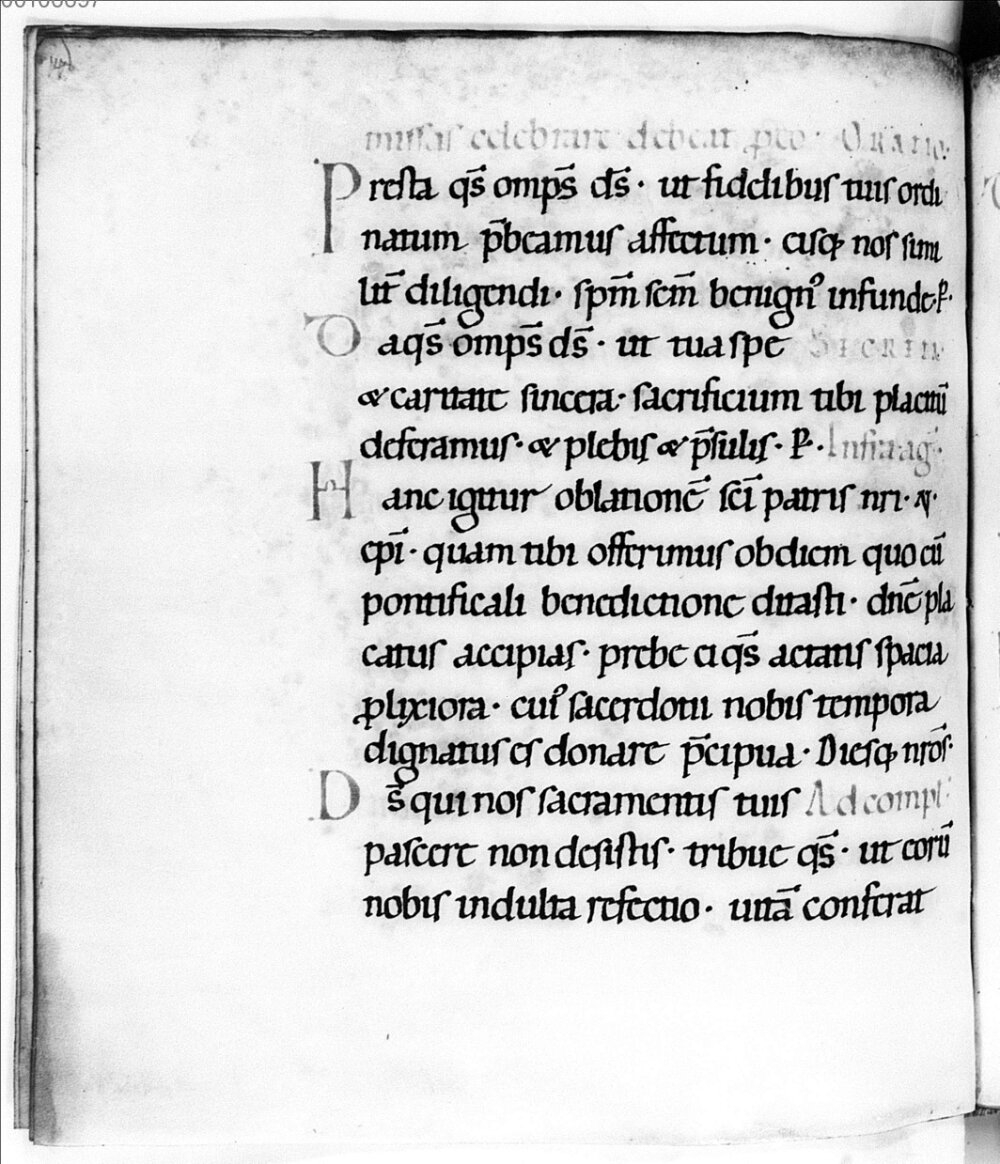 missas celebrare debeat p eo · Oratio.
Presta qs̄ omps̄ ds̄ · ut fidelibus tuis ordi
natum p̄beamus affectum · eisq; nos simi
lit̄ diligendi · spm̄ scm̄ benign᾿ infunde · P̱ ·
Da qs̄ omps̄ ds̄ · ut tua spe Secreta
& caritate sincera · sacrificium tibi placitū
deferamus · & plebis & p̄sulis · P̱ · Infra aḡ ·
Hanc igitur oblationē sc̄i patris nr̄i · N ·
ep̄i · quam tibi offerimus ob diem quo eū
pontificali benedictione ditasti · dn̄e pla
catus accipias · prebe ei qs̄ aetatis spacia
ꝓlixiora · cui᾿ sacerdotii nobis tempora
dignatus es donare p̄cipua · Diesq; nr̄os ·
Ds̄ qui nos sacramentis tuis Ad compl ·
pascere non desistis · tribue qs̄ · ut eorū
nobis indulta refectio · uitā conferat